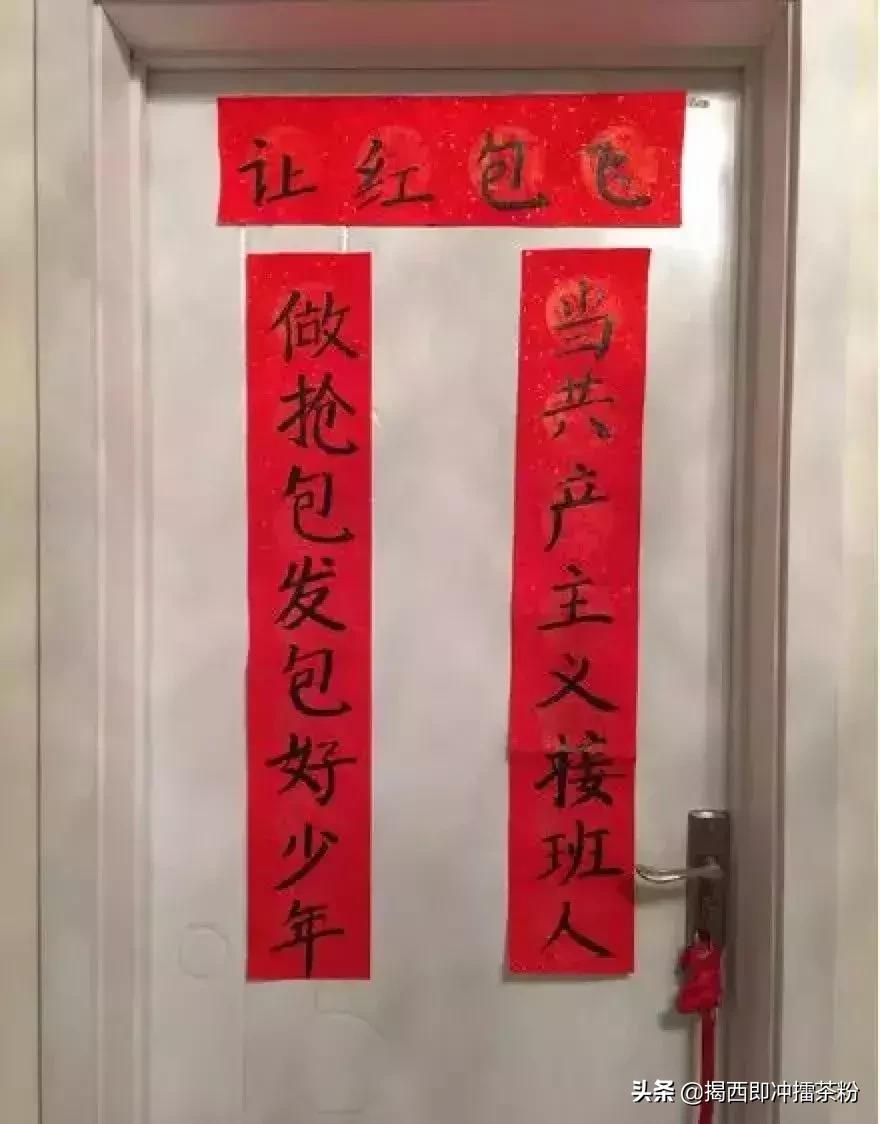 让红包飞
做抢包发包好少年
当共产主义接班人
头条 @揭西即冲擂茶粉